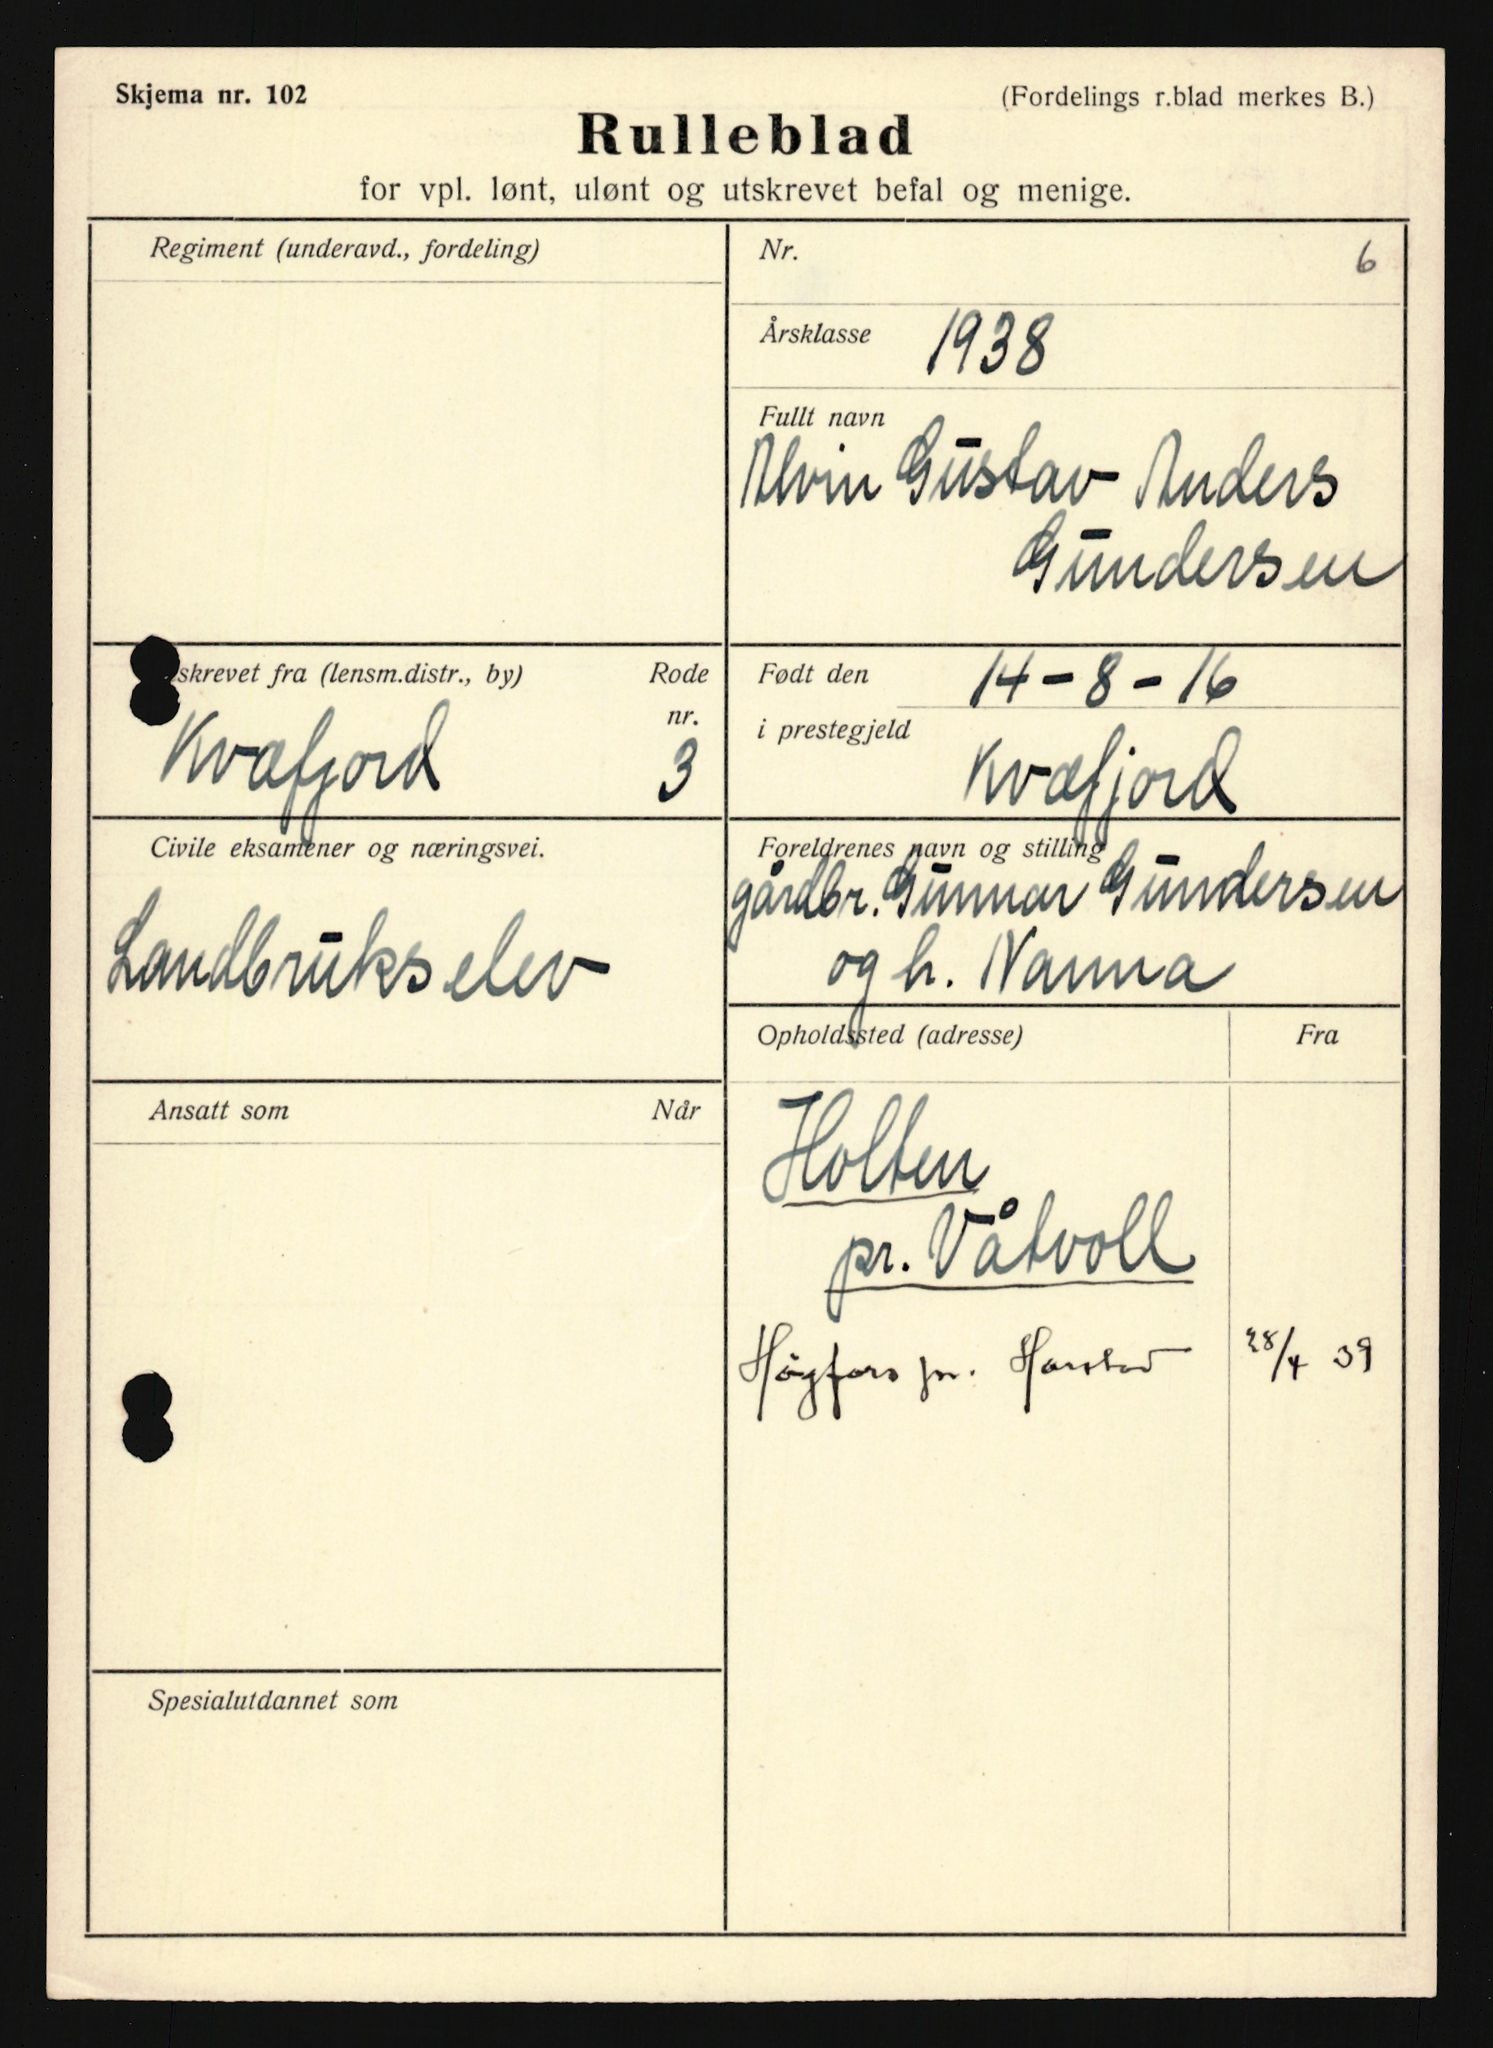 Skjema nr. 102
(Fordelings r.blad merkes B.)
Rulleblad
for vpl. lønt, ulønt og utskrevet befal og menige.
Regiment (underavd., fordeling)
Nr.
6
Årsklasse 1938
Fullt navn
Alvin Gustav Anders
Gundersen
skrevet fra (lensm.distr., by)
Rode
nr.
Kvæfjord
3
Født den 14-8-16
i prestegjeld
Kvæfjord
Civile eksamener og næringsvei.
Landbrukselev
Foreldrenes navn og stilling
gårdbr. Gunnar Gundersen
og h. Nanna
Opholdssted (adresse)
Fra
Ansatt som
Når
Holten
pr. Våtvoll
Högfors pr. Harstad
28/4 39
Spesialutdannet som